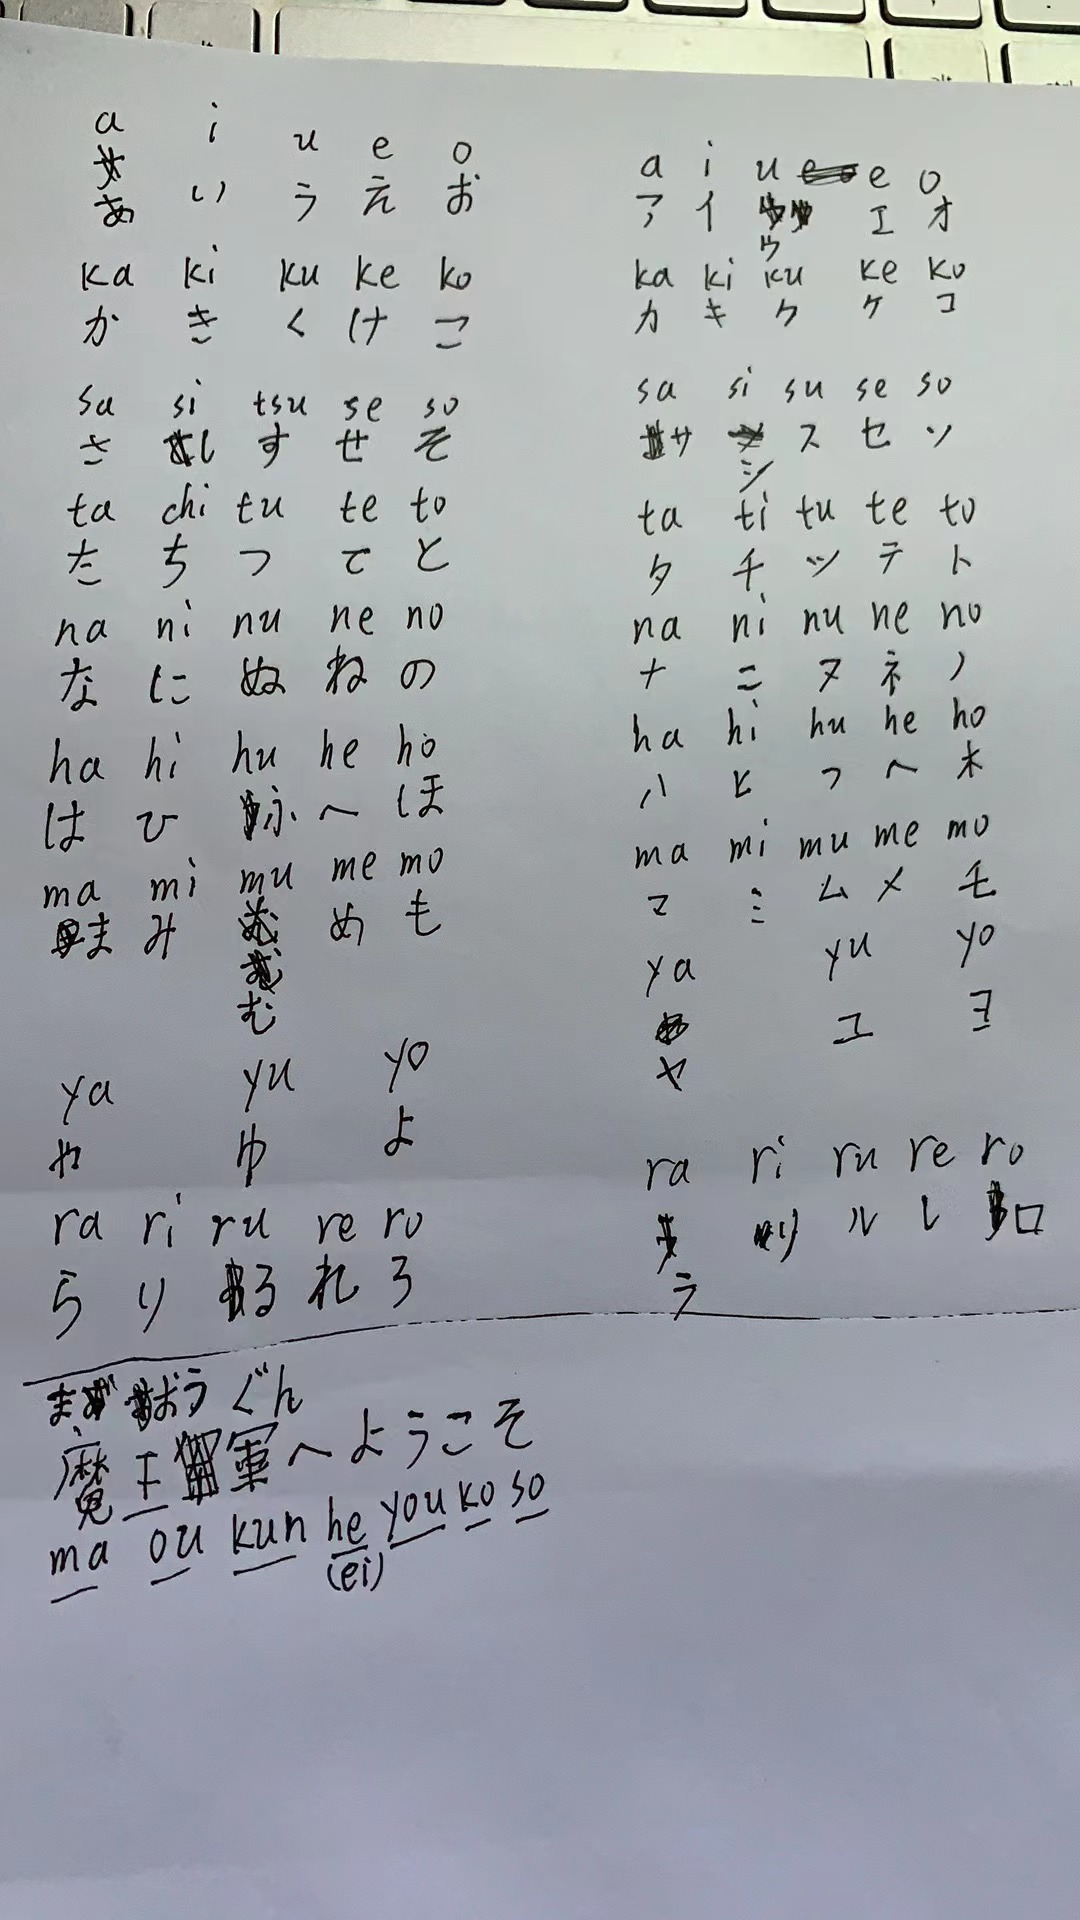 a i u e o
あ い う え お
ka ki ku ke ko
か き く け こ
sa si tsu se so
さ し す せ そ
ta chi tu te to
た ち つ て と
na ni nu ne no
な に ぬ ね の
ha hi hu he ho
は ひ ふ へ ほ
ma mi mu me mo
ま み む め も
ya yu yo
や ゆ よ
ra ri ru re ro
ら り る れ ろ
a i u e o
ア イ ウ エ オ
ka ki ku ke ko
カ キ ク ケ コ
sa si su se so
サ シ ス セ ソ
ta ti tu te to
タ チ ツ テ ト
na ni nu ne no
ナ ニ ヌ ネ ノ
ha hi hu he ho
ハ ヒ フ ヘ ホ
ma mi mu me mo
マ ミ ム メ モ
ya yu yo
ヤ ユ ヨ
ra ri ru re ro
ラ リ ル レ ロ
ま おう ぐん
魔王軍へようこそ
ma ou kun he you ko so
(ei)